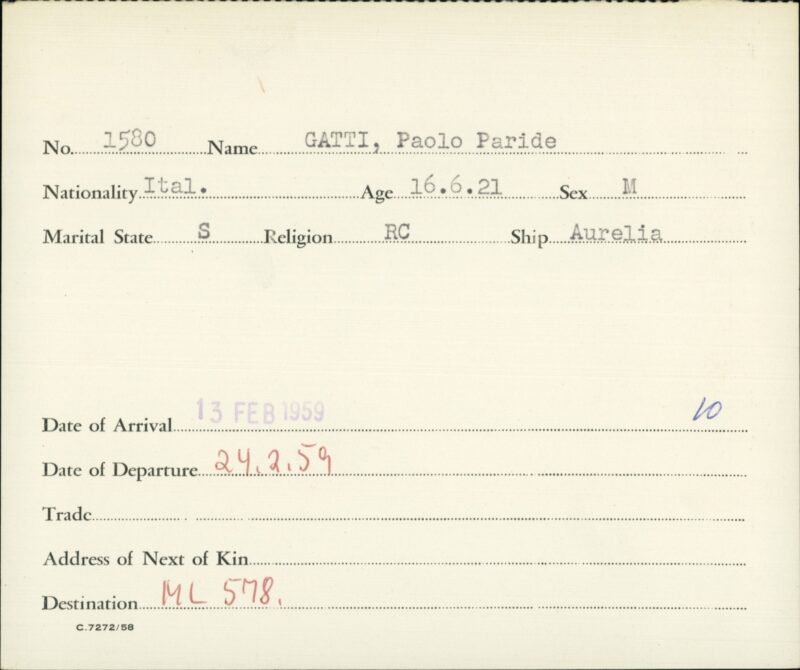 No. 1580 Name GATTI, Paolo Paride
Nationality Ital. Age 16.6.21 Sex M
Marital State S Religion RC Ship Aurelia
Date of Arrival 13 FEB 1959 10
Date of Departure 24.2.59
Trade
Address of Next of Kin
Destination ML 578.
C.7272/58